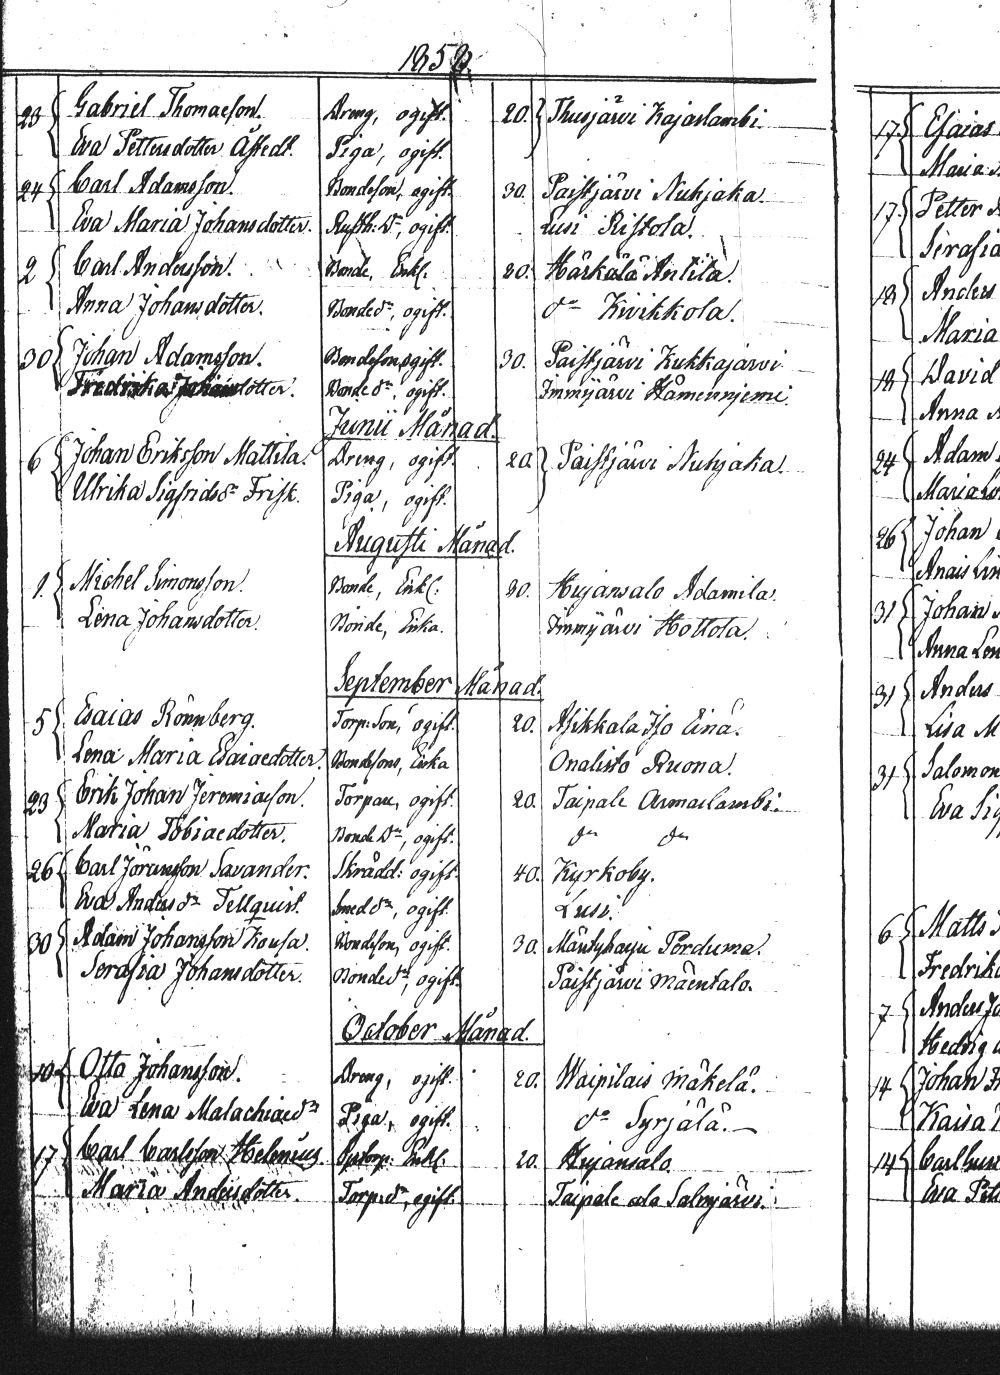 1858.
23 Gabriel Thomaeson. Dreng, ogift. 20. Thusjärvi Kajaslambi.
Eva Pettersdotter Åstedt. Piga, ogift.
24 Carl Adamsson. Bondeson, ogift. 30. Paistjärvi Nuhjaka.
Eva Maria Johansdotter. Rusth: Dr, ogift. Lusi Ristola.
2 Carl Andersson. Bonde, Enkl. 20. Härkälä Anttila.
Anna Johansdotter. Bondedr, ogift. do Kivikkola.
30 Johan Adamsson. Bondeson, ogift. 30. Paistjärvi Kukkajärvi
Fredrika Johansdotter. Bondedr, ogift. Immjärvi Hämeenniemi.
Junii Månad.
6 Johan Eriksson Mattila. Dreng, ogift. 20. Paistjärvi Nuhjaka.
Ulrika Sigfridsdr Frisk. Piga, ogift.
Augusti Månad.
1. Michel Simonsson. Bonde, Enkl: 30. Hujansalo Adamila.
Lena Johansdotter. Bonde, Enka. Immjärvi Hottola.
September Månad.
5 Esaias Rönnberg. Torp: Son, ogift. 20. Asikkala Iso Einä.
Lena Maria Esaiaedotter. Bondesons, Enka Onalisto Ruona.
23 Erik Johan Jeremiaeson. Torpare, ogift. 20. Taipale Armaslambi.
Maria Tobiaedotter. Bonde Dr, ogift. do do
26 Carl Göransson Savander. Skrädd: ogift. 40. Kyrkoby.
Eva Andersdr Tellquist. Smeddr, ogift. Lusi.
30 Adam Johansson Kousa. Bondeson, ogift. 30. Mäntyharju Perduma.
Serafia Johansdotter. Bondedr, ogift. Paistjärvi Mäentalo.
October Månad.
10 Otto Johansson. Dreng, ogift. 20. Waipilais Mäkelä.
Eva Lena Malachiaedr Piga, ogift. do Syrjälä.
17 Carl Carlsson Helenius. Enkl. 20. Hujansalo.
Maria Andersdotter. Torp:dr, ogift. Taipale Salmjärvi.
17. Esaias
Maria
17. Petter
Serafia
18 Anders
Maria
18 David
Anna
24 Adam
Maria
26 Johan
31 Johan
Anna Len
31 Anders
Lisa M
31 Salomon
Eva Sig
6 Matts
Fredrika
7 Anders Jo
Hedvig
14 Johan
Kaisa
14 Carl
Eva Pet